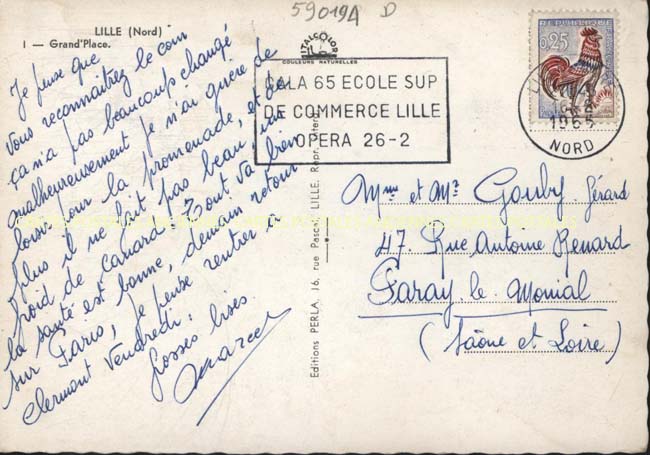 59019A D
LILLE (Nord)
I — Grand'Place.
ITALCOLOR
COULEURS NATURELLES
Je pense que
vous reconnaitrez le coin
ça n'a pas beaucoup changé
malheureusement je n'ai guère de
loisir pour la promenade, et de
plus il ne fait pas beau, un
froid de canard. Tout va bien
la santé est bonne, demain retour
sur Paris, je pense rentrer à
clermont Vendredi.
Grosses bises.
Marcel
Editions PERLA, 16, rue Pascal, LILLE. Repr. interd.
GALA 65 ECOLE SUP
DE COMMERCE LILLE
OPERA 26-2
0,25
1965
NORD
Mme et Mr Gouby Gérard
47. Rue Antoine Renard
Paray le Monial
(Saône et Loire)